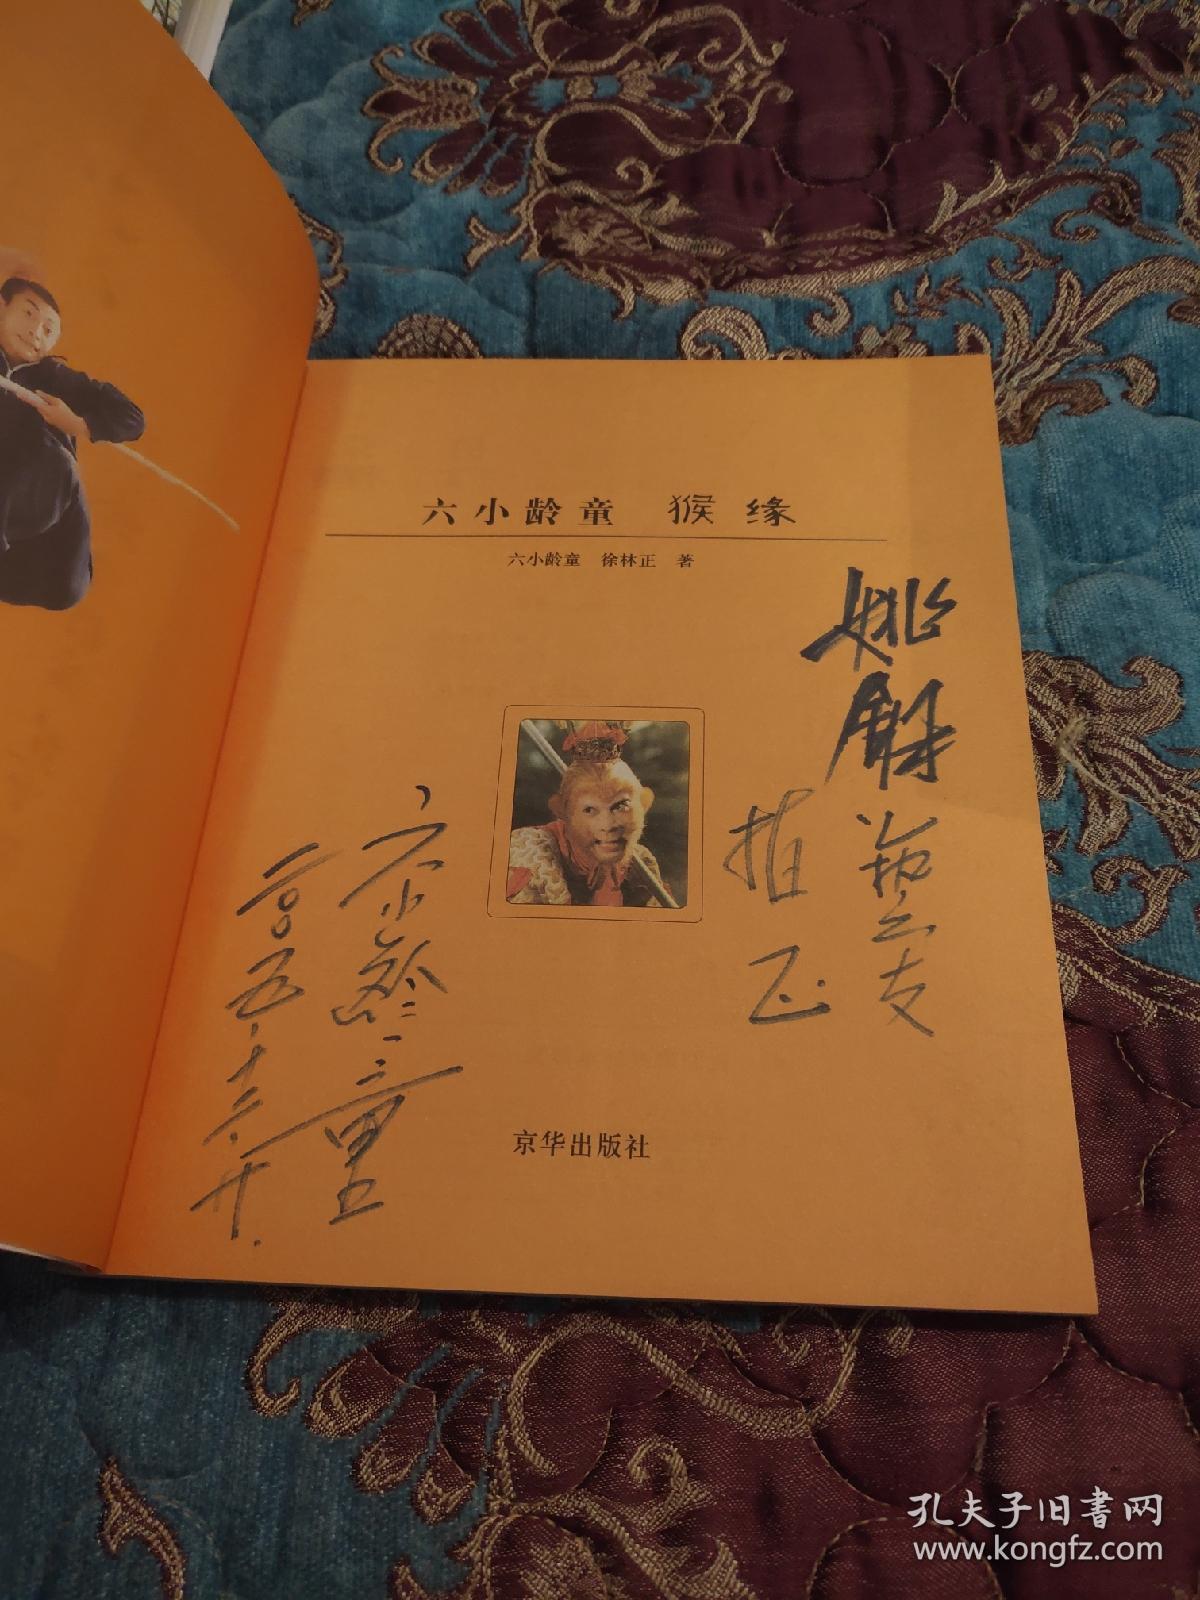 六小龄童 猴缘
六小龄童 徐林正 著
姚
艺友
指正
六小龄童
二〇〇五.十二.廿.
京华出版社
孔夫子旧書网
www.kongfz.com